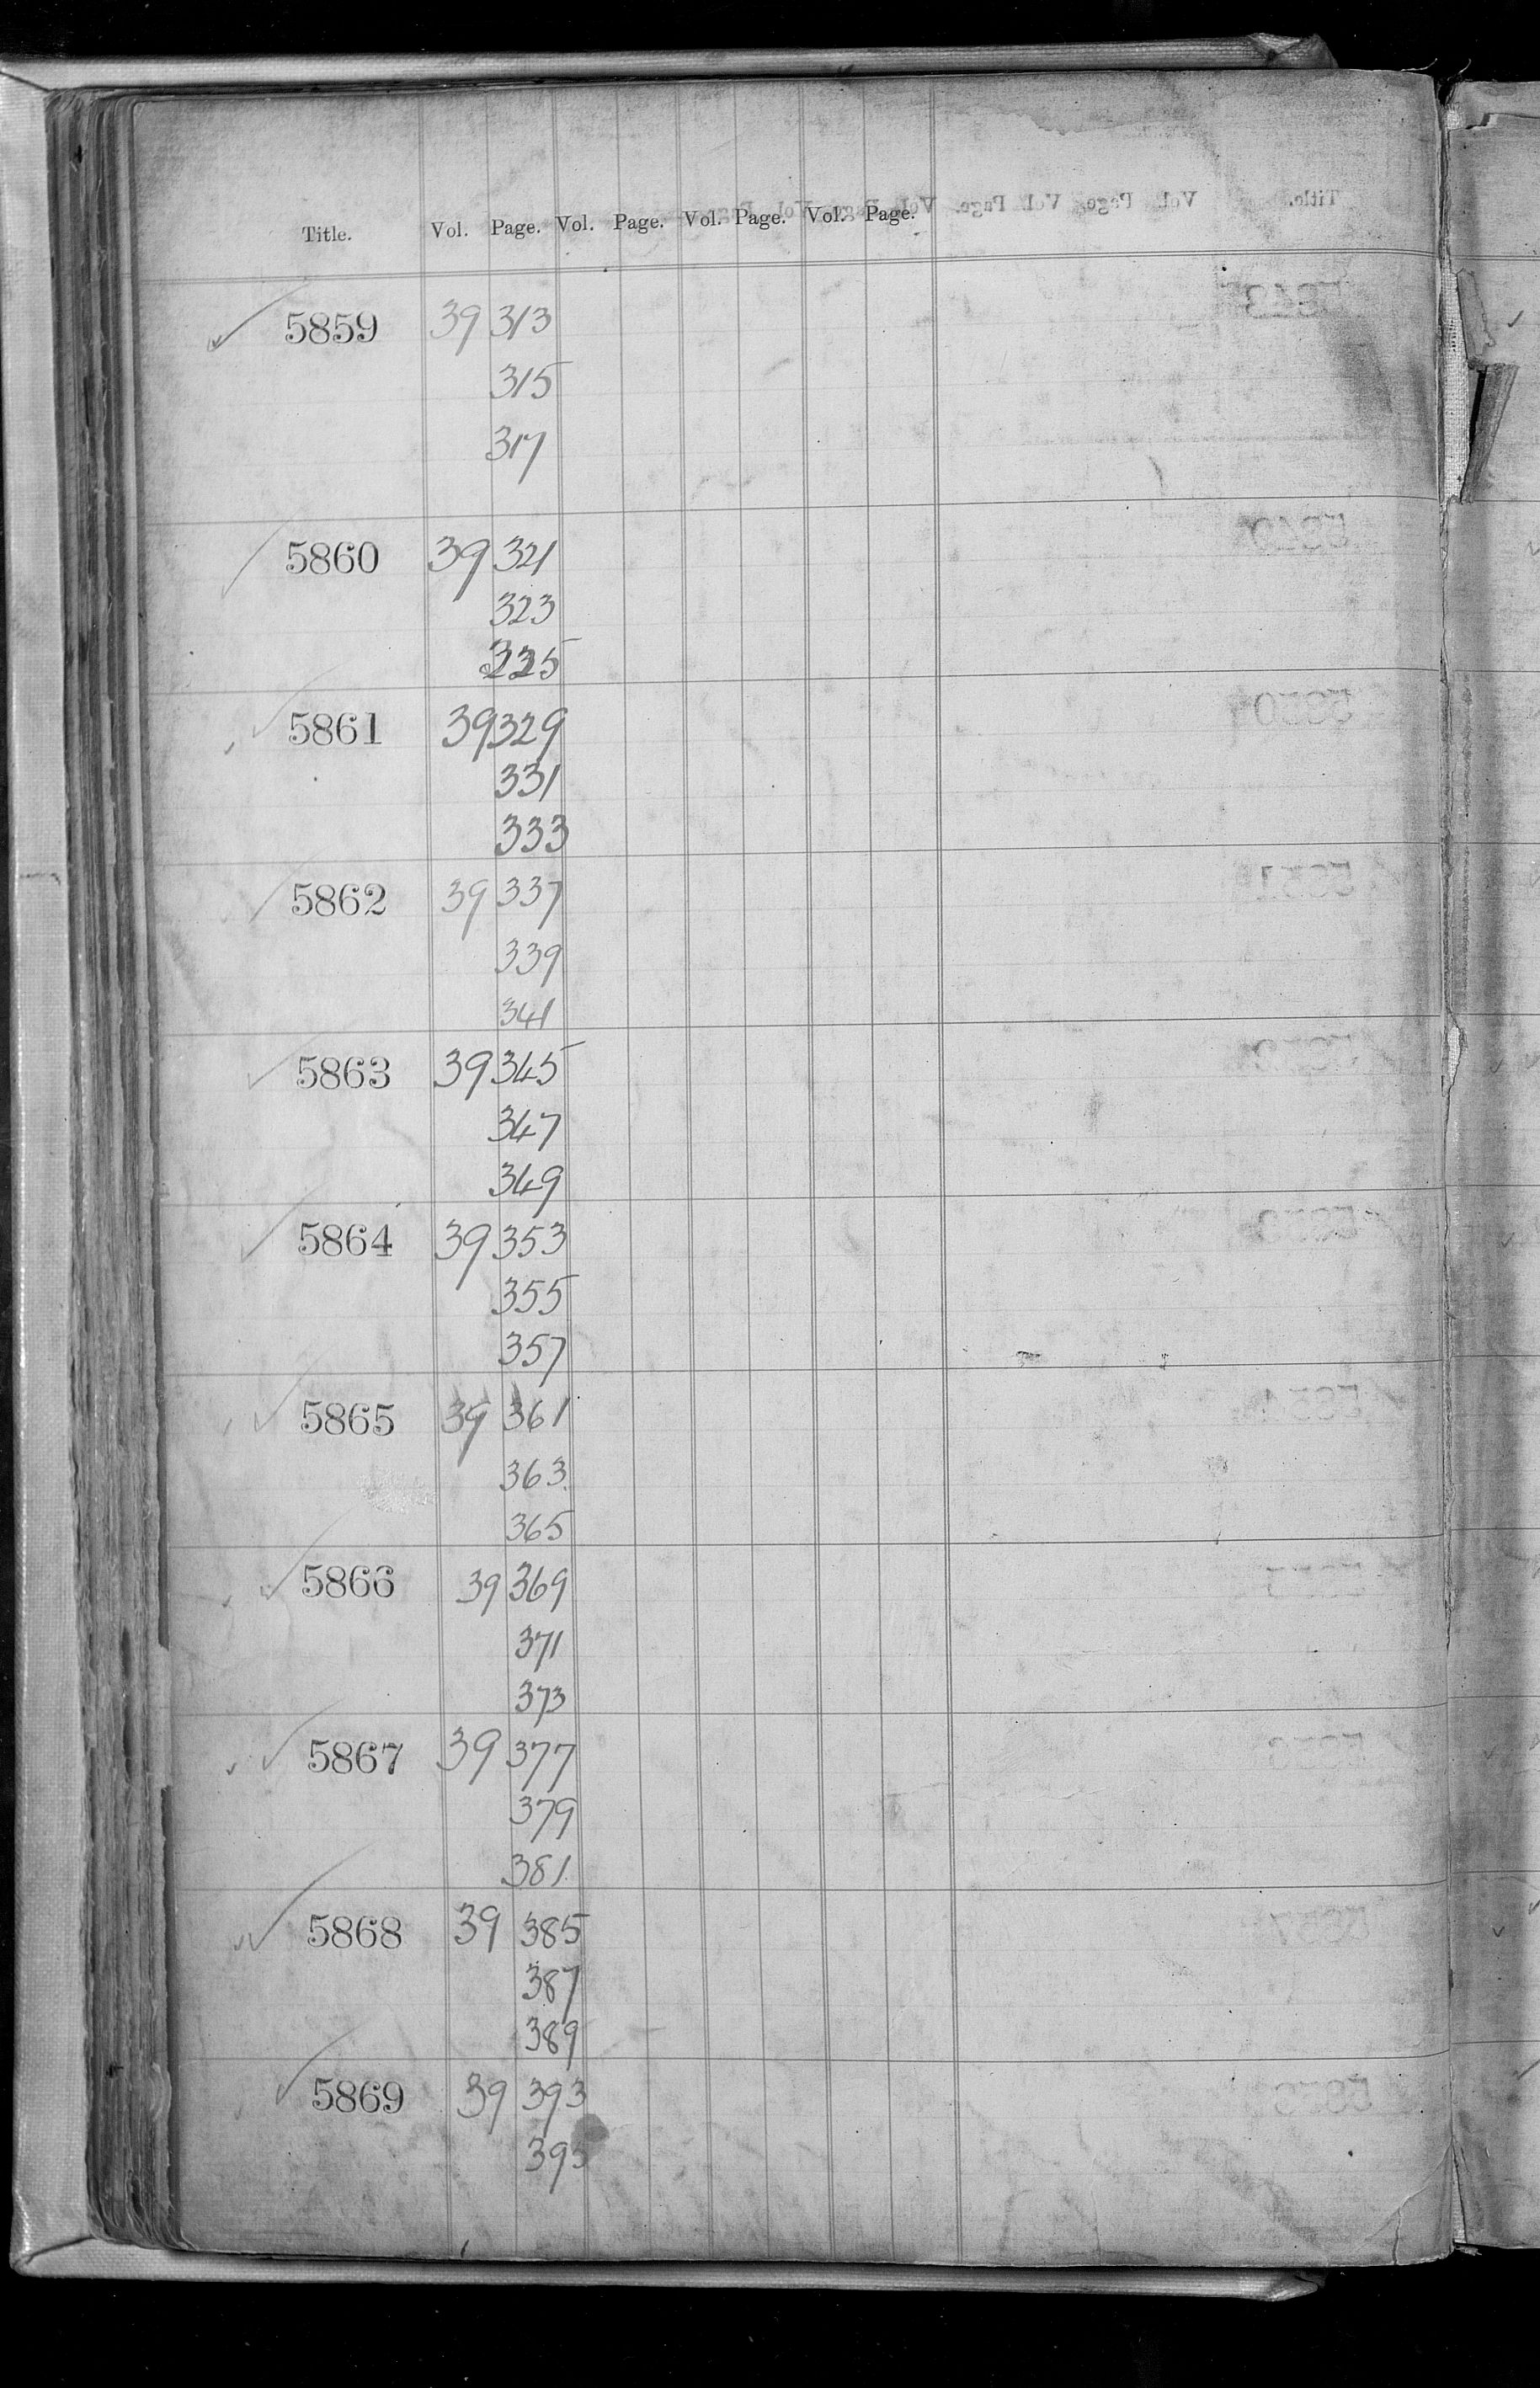 Title. Vol. Page. Vol. Page. Vol. Page. Vol. Page.
5859 39 313
315
317
5860 39 321
323
325
5861 39 329
331
333
5862 39 337
339
341
5863 39 345
347
349
5864 39 353
355
357
5865 39 361
363
365
5866 39 369
371
373
5867 39 377
379
381
5868 39 385
387
389
5869 39 393
395